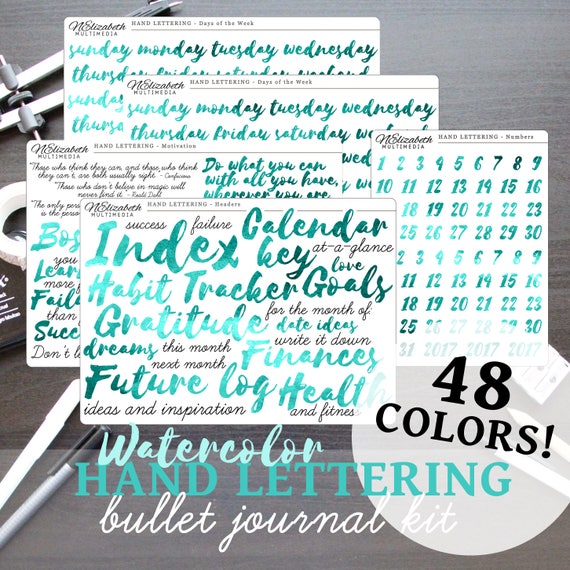 NElizabeth MULTIMEDIA HAND LETTERING - Days of the Week
sunday monday tuesday wednesday
thursday friday saturday weekend
sunday
thurs
HAND LETTERING - Days of the Week
sunday monday tuesday wednesday
thursday friday saturday
NElizabeth MULTIMEDIA HAND LETTERING - Motivation
"Those who think they can, and those who think
they can't, are both usually right. - Confucius
"Those who don't believe in magic will
never find it. - Roald Dahl
"The only
is the perso
Do what you can
with all you have,
wherever you are
Bos
you
Lear
more
Fail
than
Succ
Don't l
NElizabeth MULTIMEDIA HAND LETTERING - Numbers
1 2 3 4 5 6 7 8 9
10 11 12 13 14 15 16
18 19 20 21 22 23
25 26 27 28 29 30
1 2 3 4 5 6 7 8 9
11 12 13 14 15 16
18 19 20 21 22 23
25 26 27 28 29 30
17 2017 2017 2017
NElizabeth MULTIMEDIA HAND LETTERING - Headers
success failure Calendar
Index key at-a-glance
love
Habit Tracker Goals
Gratitude for the month of:
date ideas
dreams this month write it down
next month Finances
Future log Health
ideas and inspiration and fitness
48
COLORS!
Watercolor
HAND LETTERING
bullet journal kit